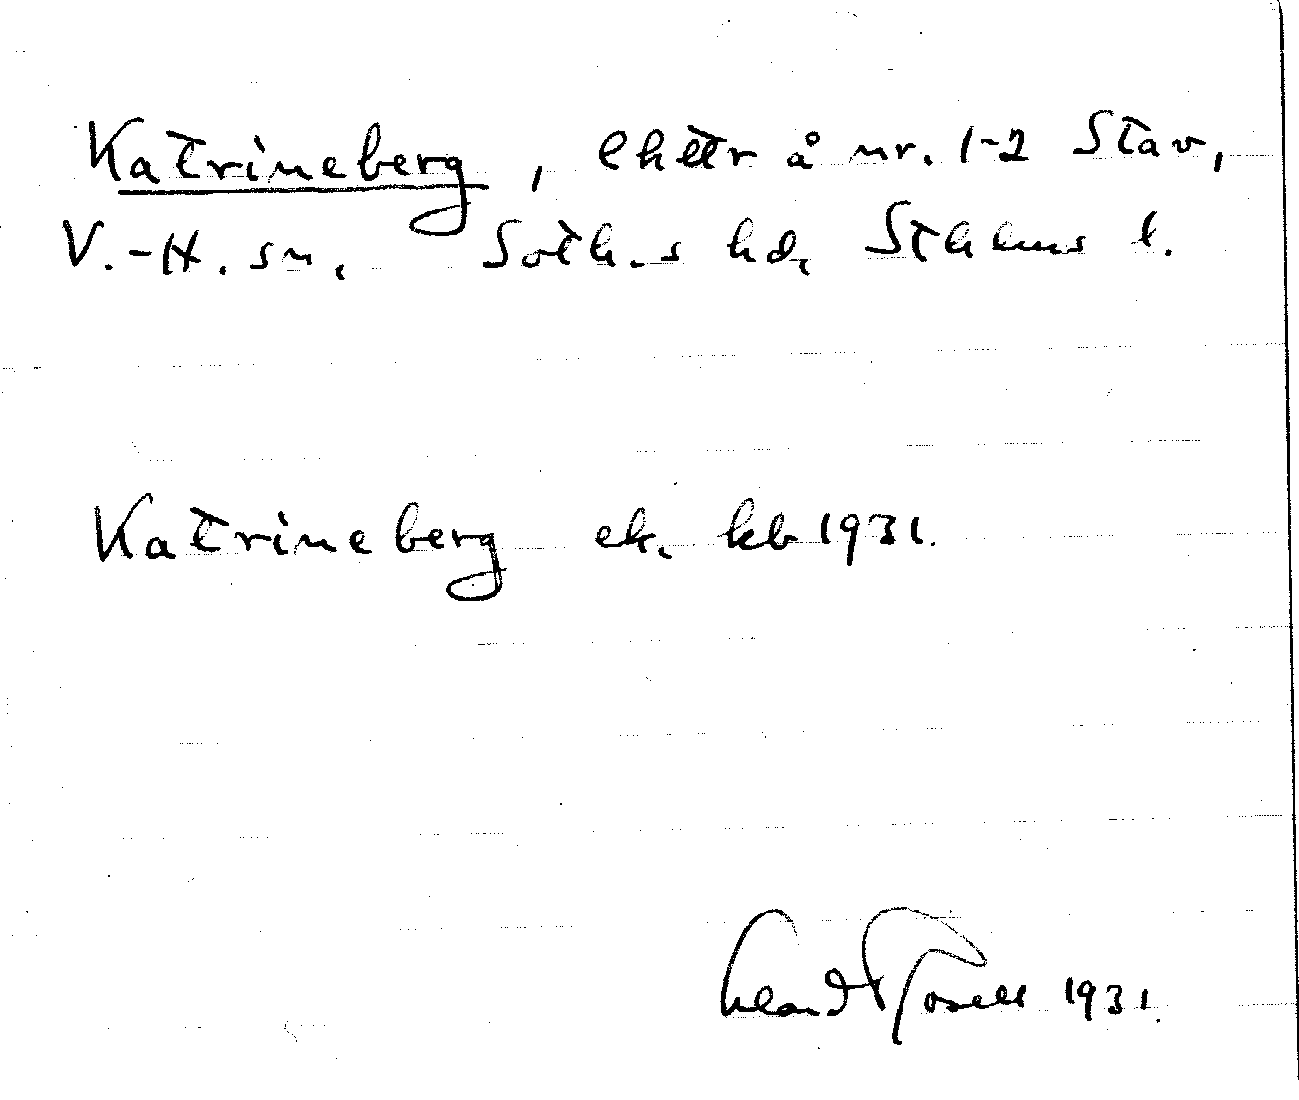 Katrineberg, lhttr å nr. 1-2 Stav,
V.-H. sn, Soth.s hd, Sthlms l.
Katrineberg ek. kb 1931.
Erland Rosell 1931.